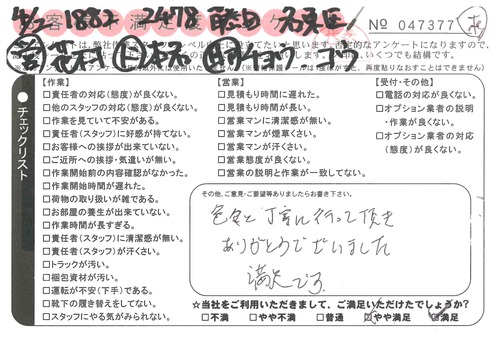 No 047377
チェックリスト
【作業】
□責任者の対応(態度)が良くない。
□他のスタッフの対応(態度)が良くない。
□作業を見ていて不安がある。
□責任者(スタッフ)に好感が持てない。
□お客様への挨拶が出来ていない。
□ご近所への挨拶・気遣いが無い。
□作業開始前の内容確認がなかった。
□作業開始時間が遅れた。
□荷物の取り扱いが雑である。
□お部屋の養生が出来ていない。
□作業時間が長すぎる。
□責任者(スタッフ)に清潔感が無い。
□責任者(スタッフ)が汗くさい。
□トラックが汚い。
□梱包資材が汚い。
□運転が不安(下手)である。
□靴下の履き替えをしてない。
□スタッフにやる気がみられない。
【営業】
□見積もり時間に遅れた。
□見積もり時間が長い。
□営業マンに清潔感が無い。
□営業マンが煙草くさい。
□営業マンが汗くさい。
□営業態度が良くない。
□営業の説明と作業が一致してない。
【受付・その他】
□電話の対応が良くない。
□オプション業者の説明
・作業が良くない。
□オプション業者の対応
(態度)が良くない。
その他、ご意見・ご要望等ありましたらお書き下さい。
色々と丁寧に行って頂き
ありがとうございました
満足です。
☆当社をご利用いただきまして、ご満足いただけたでしょうか?
□不満 □やや不満 □普通 □やや満足 □満足